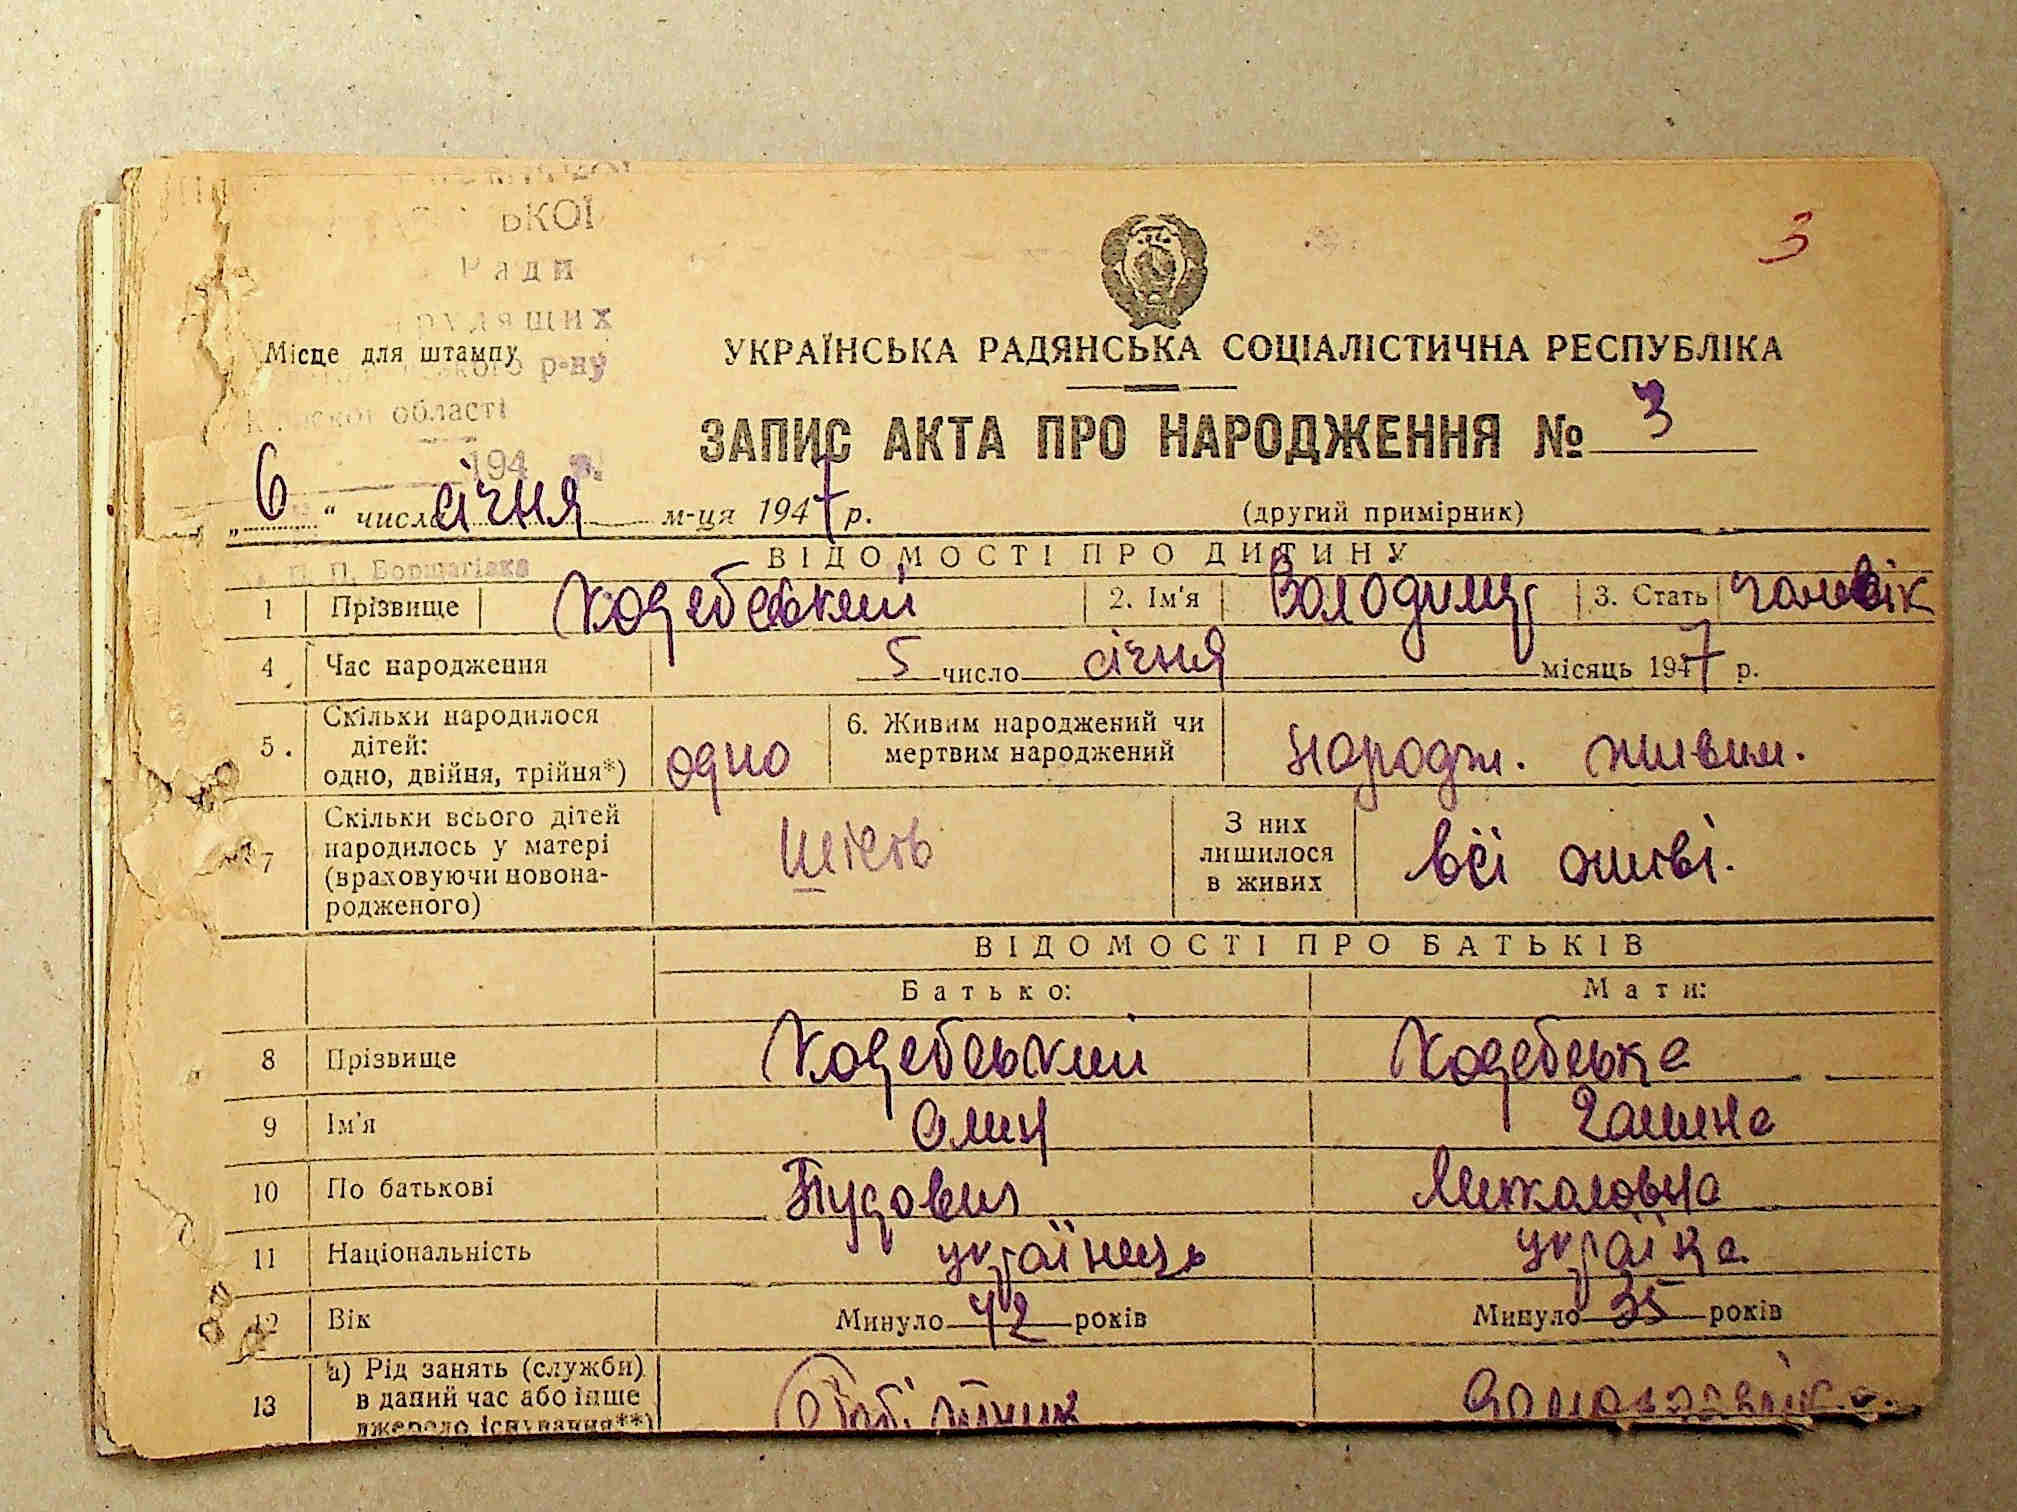 ЬКОЇ
Ради
трудящих
р-ну
області
194 р.
П. П. Борщагівка
3
Місце для штампу
УКРАЇНСЬКА РАДЯНСЬКА СОЦІАЛІСТИЧНА РЕСПУБЛІКА
ЗАПИС АКТА ПРО НАРОДЖЕННЯ № 3
„6“ числа січня м-ця 1947 р. (другий примірник)
ВІДОМОСТІ ПРО ДИТИНУ
1 Прізвище Ходебський 2. Ім'я Володимир 3. Стать чоловік
4 Час народження 5 число січня місяць 1947 р.
5. Скільки народилося дітей: одно, двійня, трійня*) одно 6. Живим народжений чи мертвим народжений народж. живим.
7 Скільки всього дітей народилось у матері (враховуючи новонародженого) шість З них лишилося в живих всі живі.
ВІДОМОСТІ ПРО БАТЬКІВ
Батько: Мати:
8 Прізвище Ходебський Ходебська
9 Ім'я Галина
10 По батькові Михаловна
11 Національність українець українка
12 Вік Минуло 42 років Минуло 35 років
13 а) Рід занять (служби) в даний час або інше джерело існування**)